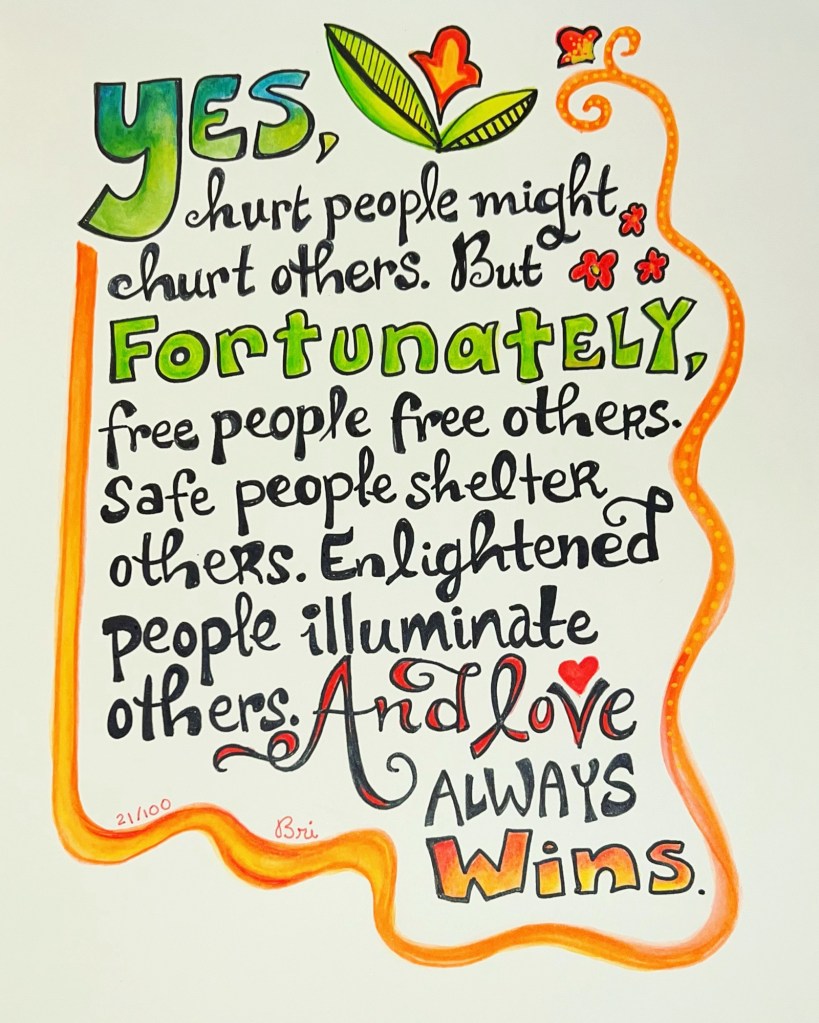 YES,
hurt people might
hurt others. But
FortunatELY,
free people free others.
Safe people shelter
others. Enlightened
people illuminate
others. And love
ALWAYS
Wins.
21/100
Bri